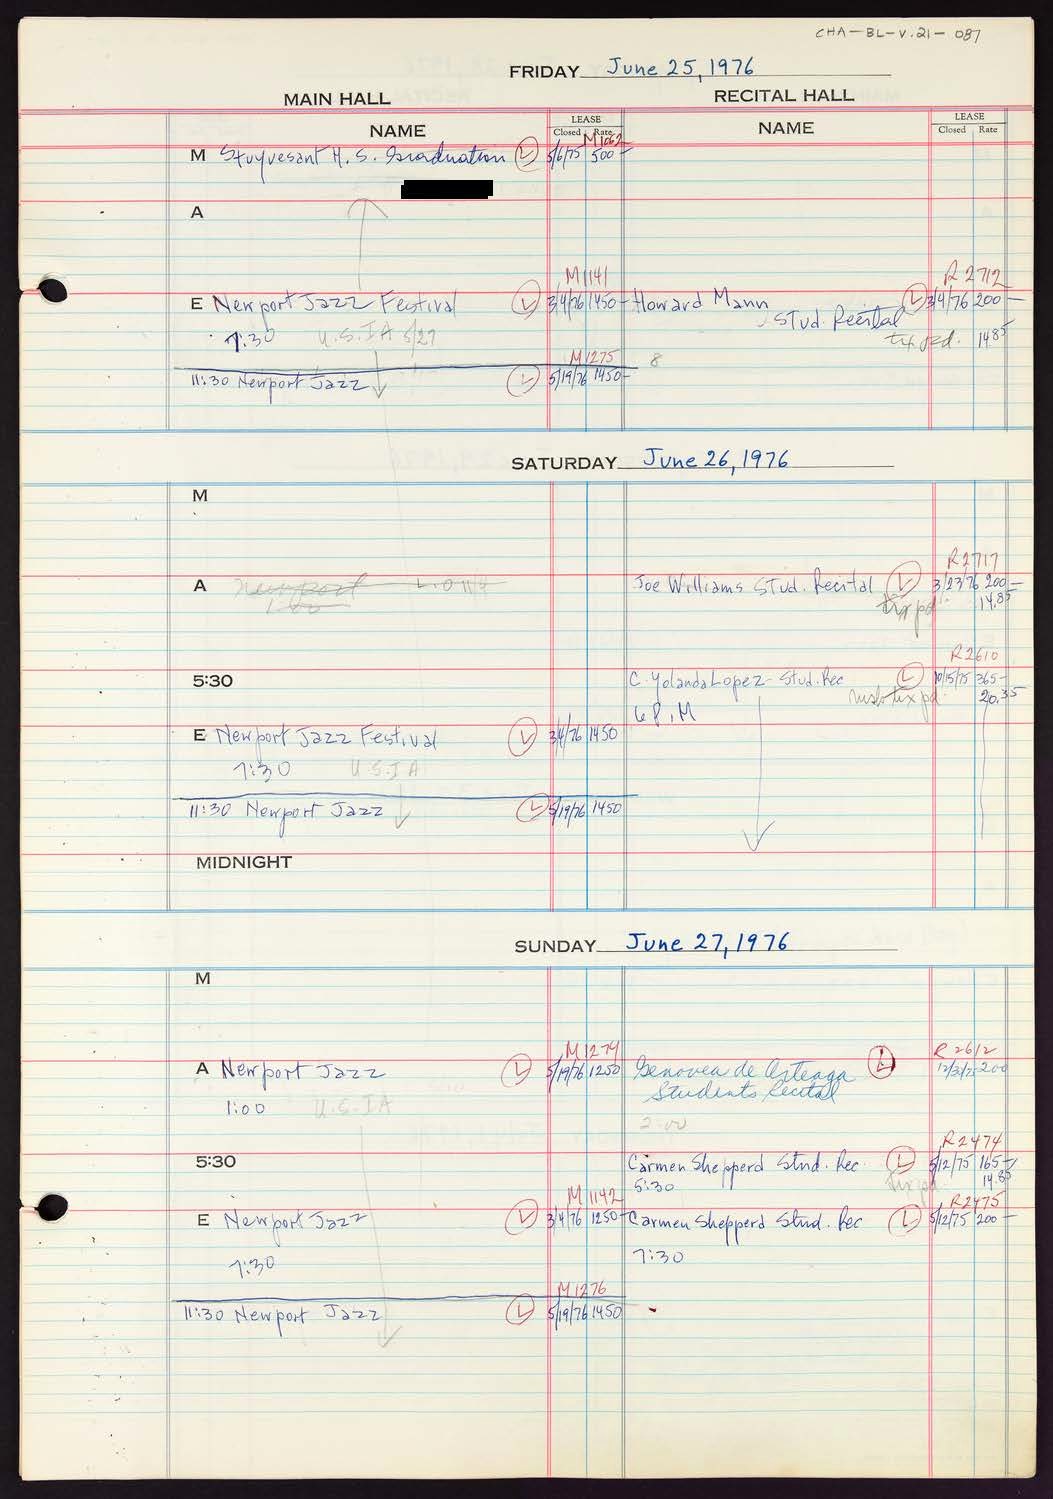 CHA-BL-V.21-087
FRIDAY June 25, 1976
MAIN HALL RECITAL HALL
NAME LEASE Closed Rate NAME LEASE Closed Rate
M 1062
M Stuyvesant H. S. Graduation L 5/6/75 500-
A
M 1141 R 2712
E Newport Jazz Festival L 3/4/76 1450- Howard Mann L 3/4/76 200-
Stud. Recital
7:30 U.S.IA 5/27 tix pd. 14.85
M 1275 8
11:30 Newport Jazz L 5/19/76 1450-
SATURDAY June 26, 1976
M
R2717
A Newport Joe Williams Stud. Recital L 3/23/76 200-
tix pd. 14.85
R2610
5:30 C. Yolanda Lopez- Stud. Rec L 10/15/75 365-
tix pd. 20.35
6 P.M
E Newport Jazz Festival L 3/4/76 1450
7:30 U.S.I A
11:30 Newport Jazz L 5/19/76 1450
MIDNIGHT
SUNDAY June 27, 1976
M
M 1274 R 2612
A Newport Jazz L 5/19/76 1250 Genovea de Arteaga L 12/3/75 200
Students Recital
1:00 U.S.IA
2:00
R2474
5:30 Carmen Shepperd Stud. Rec. L 5/12/75 165-
5:30 tix pd. 14.85
M 1142 R2475
E Newport Jazz L 3/4/76 1250- Carmen Shepperd Stud. Rec L 5/12/75 200-
7:30 7:30
M 1276
11:30 Newport Jazz L 5/19/76 1450